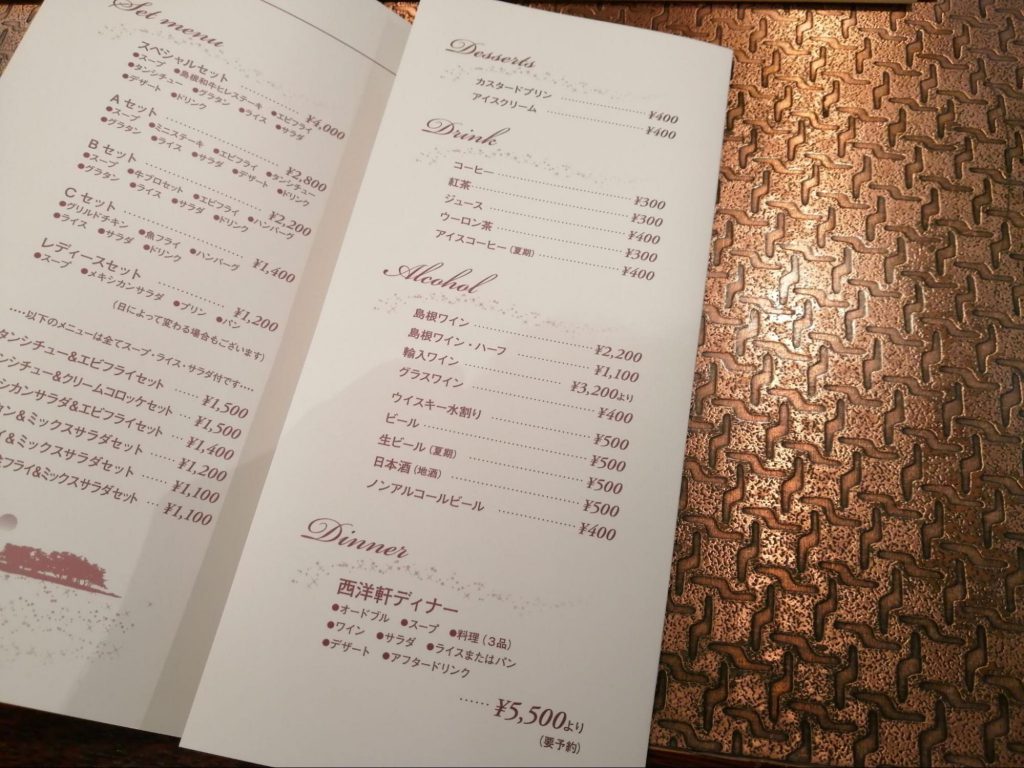 Set menu
スペシャルセット ¥4,000
●スープ ●島根和牛ヒレステーキ ●エビフライ
●タンシチュー ●グラタン ●ライス ●サラダ
●デザート ●ドリンク
Aセット ¥2,800
●スープ ●ミニステーキ ●エビフライ ●タンシチュー
●グラタン ●ライス ●サラダ ●デザート ●ドリンク
Bセット ¥2,200
●スープ ●牛プロセット ●エビフライ ●ハンバーグ
●グラタン ●ライス ●サラダ ●ドリンク
Cセット ¥1,400
●グリルドチキン ●魚フライ ●ハンバーグ
●ライス ●サラダ ●ドリンク
レディースセット ¥1,200
●スープ ●メキシカンサラダ ●プリン ●パン
(日によって変わる場合もございます)
····以下のメニューは全てスープ・ライス・サラダ付です····
タンシチュー&エビフライセット ¥1,500
ンシチュー&クリームコロッケセット ¥1,500
シカンサラダ&エビフライセット ¥1,400
&ミックスサラダセット ¥1,200
&ミックスサラダセット ¥1,100
フライ&ミックスサラダセット ¥1,100
Desserts
カスタードプリン ¥400
アイスクリーム ¥400
Drink
コーヒー ¥300
紅茶 ¥300
ジュース ¥400
ウーロン茶 ¥300
アイスコーヒー(夏期) ¥400
Alcohol
島根ワイン ¥2,200
島根ワイン・ハーフ ¥1,100
輸入ワイン ¥3,200より
グラスワイン ¥400
ウイスキー水割り ¥500
ビール ¥500
生ビール(夏期) ¥500
日本酒(地酒) ¥500
ノンアルコールビール ¥400
Dinner
西洋軒ディナー
●オードブル ●スープ ●料理(3品)
●ワイン ●サラダ ●ライスまたはパン
●デザート ●アフタードリンク
······ ¥5,500より
(要予約)